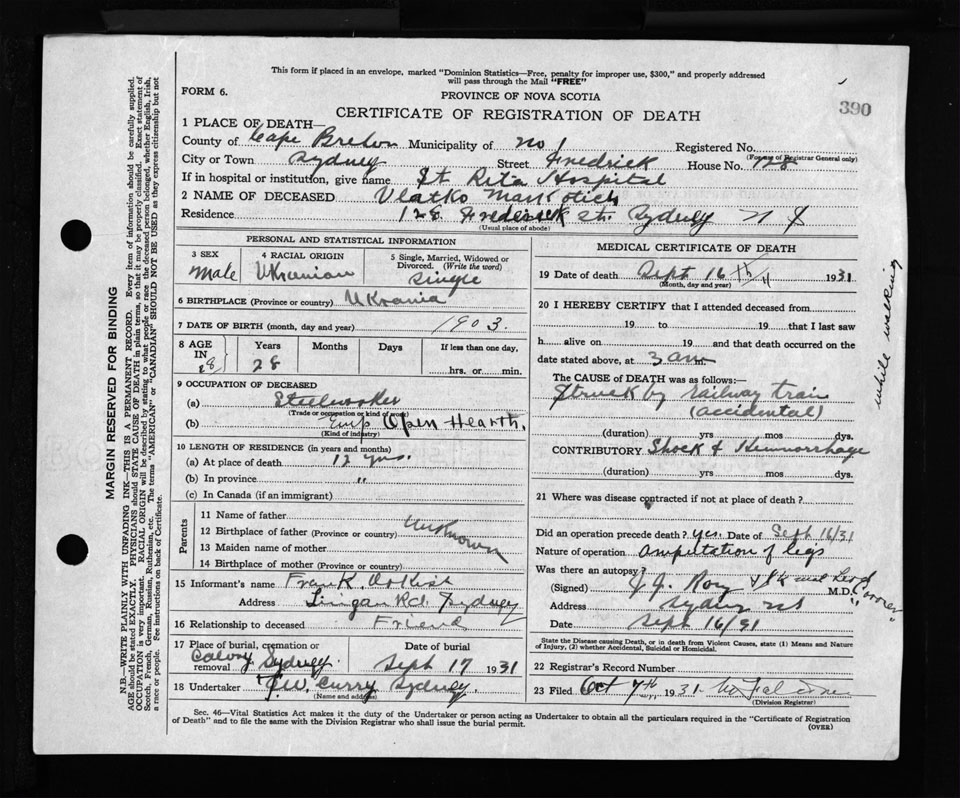 This form if placed in an envelope, marked "Dominion Statistics—Free, penalty for improper use, $300," and properly addressed
will pass through the Mail "FREE"
FORM 6.
PROVINCE OF NOVA SCOTIA
390
CERTIFICATE OF REGISTRATION OF DEATH
1 PLACE OF DEATH—
County of Cape Breton Municipality of No 1 Registered No.
(For use of Registrar General only)
City or Town Sydney Street Fredrick House No. 128
If in hospital or institution, give name St Rita Hospital
2 NAME OF DECEASED Vlatko Markotich
Residence 128 Frederick St. Sydney N S
(Usual place of abode)
PERSONAL AND STATISTICAL INFORMATION
3 SEX 4 RACIAL ORIGIN 5 Single, Married, Widowed or Divorced. (Write the word)
Male Ukranian Single
6 BIRTHPLACE (Province or country) Ukrania
7 DATE OF BIRTH (month, day and year) 1903.
8 AGE IN Years Months Days If less than one day,
28 28 hrs. or min.
9 OCCUPATION OF DECEASED
(a) Steelworker
(Trade or occupation or kind of
(b) Emp Open Hearth.
(Kind of industry)
10 LENGTH OF RESIDENCE (in years and months)
(a) At place of death 12 yrs.
(b) In province "
(c) In Canada (if an immigrant)
Parents
11 Name of father
12 Birthplace of father (Province or country) Unknown
13 Maiden name of mother
14 Birthplace of mother (Province or country)
15 Informant's name Frank
Address Lingan Rd. Sydney
16 Relationship to deceased Friend
17 Place of burial, cremation or removal Date of burial
Calvry Sydney. Sept 17 1931
18 Undertaker T.W. Curry Sydney.
(Name and address)
MEDICAL CERTIFICATE OF DEATH
19 Date of death Sept 16th 1931
(Month, day and year)
20 I HEREBY CERTIFY that I attended deceased from
19 to 19 that I last saw
h alive on 19 and that death occurred on the
date stated above, at 3 am
The CAUSE OF DEATH was as follows:—
Struck by railway train
(accidental)
while walking
(duration) yrs mos dys.
CONTRIBUTORY Shock & Hemmorrhage
(duration) yrs mos dys.
21 Where was disease contracted if not at place of death?
Did an operation precede death? yes. Date of Sept 16/31
Nature of operation amputation of legs
Was there an autopsy?
(Signed) J.J. Roy M.D.
Address Sydney NS
Date Sept 16/31
State the Disease causing Death, or in death from Violent Causes, state (1) Means and Nature
of Injury, (2) whether Accidental, Suicidal or Homicidal.
22 Registrar's Record Number
23 Filed Oct 7th 1931
(Division Registrar)
Sec. 46—Vital Statistics Act makes it the duty of the Undertaker or person acting as Undertaker to obtain all the particulars required in the "Certificate of Registration
of Death" and to file the same with the Division Registrar who shall issue the burial permit.
(OVER)
MARGIN RESERVED FOR BINDING
N.B.—WRITE PLAINLY WITH UNFADING INK—THIS IS A PERMANENT RECORD. Every item of information should be carefully supplied.
AGE should be stated EXACTLY. PHYSICIANS should STATE CAUSE OF DEATH in plain terms, so that it may be properly classified. Exact statement of
OCCUPATION is very important. RACIAL ORIGIN will be described by stating to what people or race the deceased person belonged, whether English, Irish,
Scotch, French, German, Russian, Ruthenian, etc. The terms "AMERICAN" or "CANADIAN" SHOULD NOT BE USED as they express citizenship but not
a race or people. See instructions on back of Certificate.